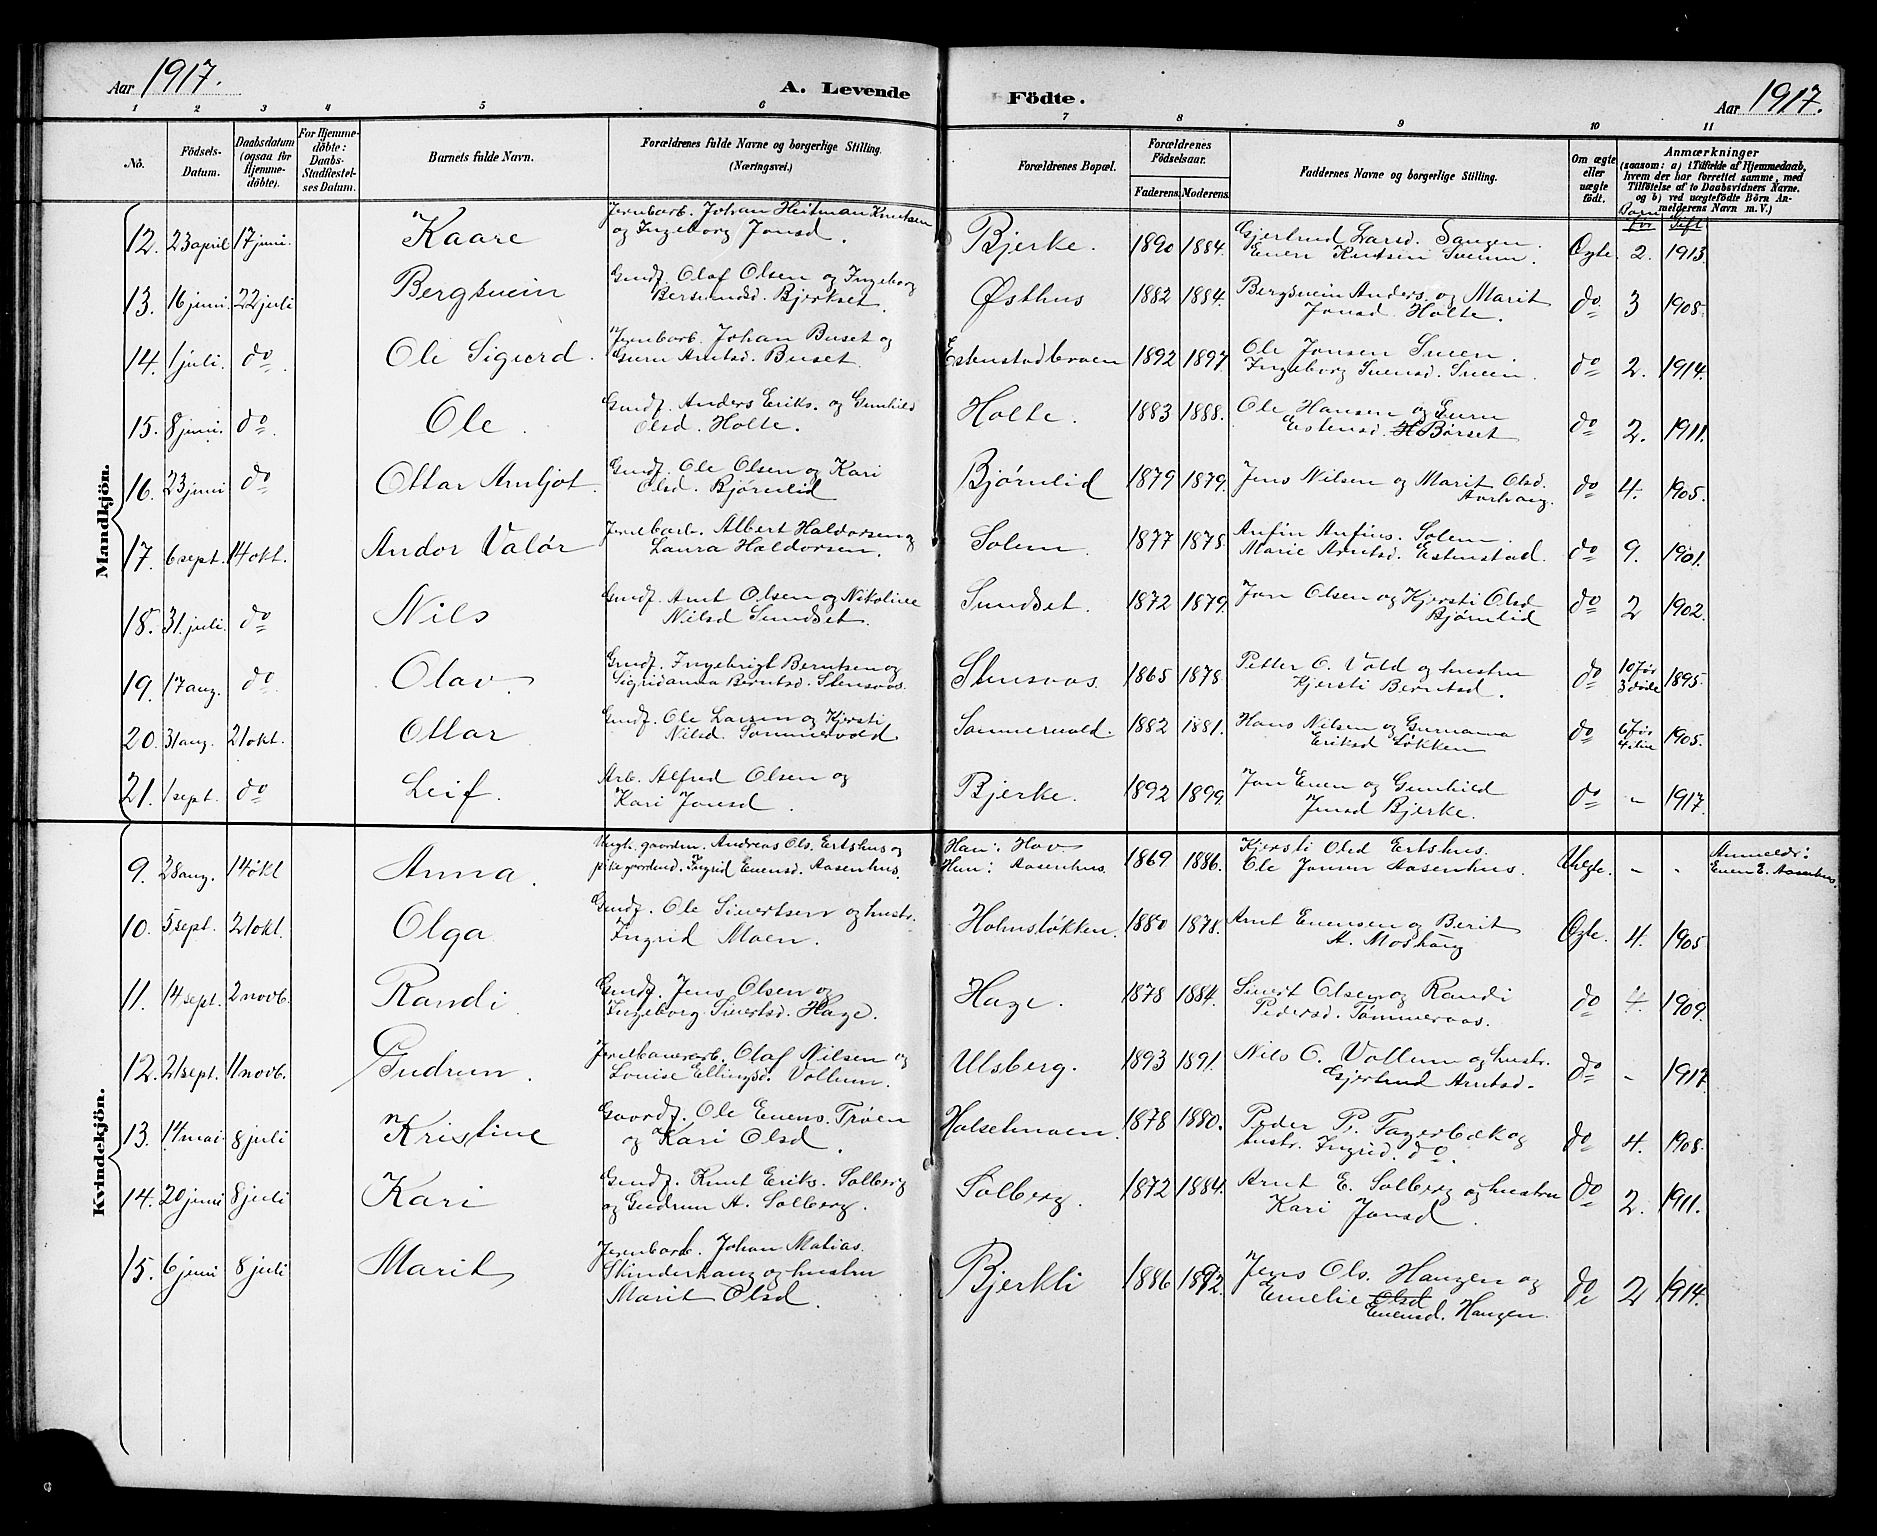 Aar 1917.
A. Levende Födte.
Aar 1917.
1 2 3 4 5 6 7 8 9 10 11
No.
Födsels-Datum.
Daabsdatum (ogsaa for Hjemme-döbte).
For Hjemme-döbte: Daabs-Stadfæstel-ses Datum.
Barnets fulde Navn.
Forældrenes fulde Navne og borgerlige Stilling. (Næringsvei.)
Forældrenes Bopæl.
Forældrenes Födselsaar.
Faderens. Moderens.
Faddernes Navne og borgerlige Stilling.
Om ægte eller uægte födt.
Anmærkninger
(saasom: a) i Tilfælde af Hjemmedaab,
hvem der har forrettet samme, med
Tilföielse af to Daabsvidners Navne.
og b) ved uægtefödte Börn An-
melderens Navn m. V.)
Barn før Gift
Mandkjön.
12. 23 april 17 juni. Kaare Jernbarb. Johan Heitman Knutsen
og Ingeborg Jonsd. Bjerke. 1890 1884. Gjertrud Larsd. Haugen.
Even Knutsen Sveum. Ægte. 2. 1913.
13. 16 juni. 22 juli Bergsvein Gmdf. Olaf Olsen og Ingeborg
Bersvendsd. Bjerkset. Østhus 1882 1884. Bergsvein Anders. og Marit
Jonsd Holte. do 3 1908.
14. 1 juli. do Ole Sigurd. Jernbarb. Johan Buset og
Guru Arntsd. Buset. Estenstadbroen 1892 1897 Ole Jonsen Sneen.
Ingeborg Svensd. Sneen. do 2. 1914.
15. 8 juni. do Ole. Gmdf. Anders Eriks. og Gunhild
Olsd. Holte. Holte. 1883 1888. Ole Hansen og Guru
Estensd. Børset do 2. 1911.
16. 23 juni do Ottar Arnljot. Gmdf. Ole Olsen og Kari
Olsd. Bjørnlid Bjørnlid 1879 1879. Jens Nilsen og Marit Olsd.
Aarhaug. do 4. 1905.
17. 6 sept. 14 okt. Andor Valør Jernbarb. Albert Haldorsen og
Laura Haldorsen. Solem. 1877 1878. Anfin Anfins. Solem.
Marie Arntsd. Estenstad. do 9. 1901.
18. 31 juli. do Nils Gmdf. Arnt Olsen og Nikoline
Nilsd Sundset. Sundset. 1872 1879. Jon Olsen og Kjersti Olsd
Bjørnlid do 2 1902.
19. 17 aug. do Olav. Gmdf. Ingebrigt Berntsen og
Sigridanna Berntsd. Stensaas. Stensaas. 1865 1878 Petter O. Vold og hustru
Kjersti Berntsd. do 10 før
3 døde 1895.
20. 31 aug. 21 okt. Ottar Gmdf. Ole Larsen og Kjersti
Nilsd. Sommervold Sommervold. 1882 1881. Hans Nilsen og Gurianna
Eriksd Løkken do 6 før
1905.
21. 1 sept. do Leif. Arb. Alfred Olsen og
Kari Jonsd. Bjerke. 1892 1899 Jon Even og Gunhild
Jonsd Bjerke. do - 1917.
Kvindekjön.
9. 28 aug. 14 økt Anna. Ungk. gaardm. Andreas Ols. Ertshus og
pike Ingrid Evensd. Aasenhus. Han: Hov
Hun: Aasenhus. 1869 1886. Kjersti Olsd Ertshus.
Ole Jonsen Aasenhus. Uegte. - - Anmelder:
Even E. Aasenhus.
10. 5 sept. 21 okt. Olga Gmdf. Ole Sivertsen og hustr.
Ingrid Moen. Holmsløkken. 1880 1878. Arnt Evensen og Berit
A. Moshaug Ægte. 4. 1905
11. 14 sept. 2 novb. Randi Gmdf. Jens Olsen og
Ingeborg Sivertsd. Hage. Hage. 1878 1884. Sivert Olsen og Randi
Pedersd. Tømmeraas. do 4. 1909.
12. 21 sept. 11 novb. Gudrun. Jernbanearb. Olaf Nilsen og
Louise Ellingsd. Vollum. Ulsberg. 1893 1891. Nils O. Vollum og hustr.
Gjertrud Arntsd. do - 1917
13. 14 mai 8 juli Kristine Gaardf. Ole Evens. Trøen
og Kari Olsd. Halsetmoen. 1878 1880. Peder P. Fagerbæk og
hustr. Ingrid. do. do 4. 1908.
14. 20 juni 8 juli Kari Gmdf. Knut Eriks. Solberg
og Gudrun A. Solberg. Solberg. 1872 1884. Arnt E. Solberg og hustru
Kari Jonsd. do 2. 1911.
15. 6 juni 8 juli Marit Jernbarb. Johan Matias.
Skinderhaug og hustru
Marit Olsd. Bjerkli 1886 1892. Jens Ols. Haugen og
Emelie Olsd
Evensd. Haugen. do 2 1914.